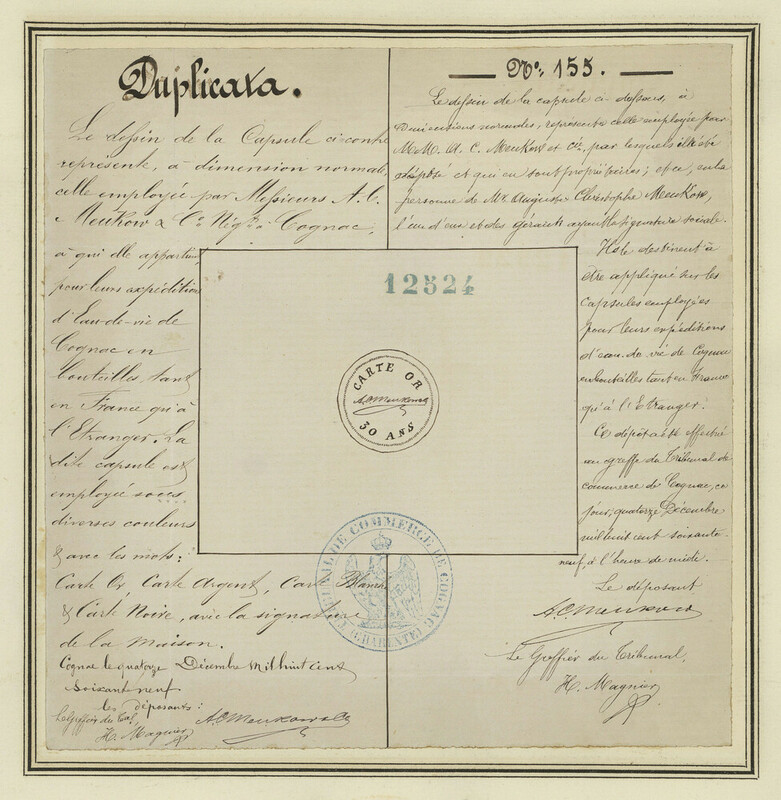 Duplicata.
Le dessin de la Capsule ci-contre
représente, à dimension normale,
celle employée par Messieurs A. C.
Meukow & Cie Négts à Cognac,
à qui elle appartient
pour leurs expéditions
d'Eau-de-vie de
Cognac en
bouteilles tant
en France qu'à
l'Etranger. La
dite capsule est
employée sous
diverses couleurs
& avec les mots:
Carte Or, Carte Argent, Carte Blanche
& Carte Noire, avec la signature
de la maison.
Cognac le quatorze Décembre Mil huit cent
soixant neuf
les déposants:
Le Greffier du Tal,
H. Magnier
A. C. Meukow & Co
No. 155.
Le dessin de la capsule ci-dessous, à
dimensions normales, représente celle employée par
M.M. A. C. Meukow et Cie, par lesquels il a été
déposé et qui en sont propriétaires; et ce, en la
personne de Mr. Auguste Christophe Meukow,
l'un d'eux et des gérants ayant la signature sociale.
Ils le destinent à
être appliqué sur les
Capsules employées
pour leurs expéditions
d'eau de vie de Cognac
en bouteilles tant en France
qu'à l'Etranger.
Ce dépôt a été effectué
au greffe du Tribunal de
commerce de Cognac, ce
jour, quatorze Décembre
mil huit cent soixante-
neuf, à l'heure de midi.
Le déposant
A. C. Meukow & Co
Le Greffier du Tribunal,
H. Magnier
12524
CARTE OR
A. C. Meukow & Co
30 ANS
TRIBUNAL DE COMMERCE DE COGNAC
(CHARENTE)